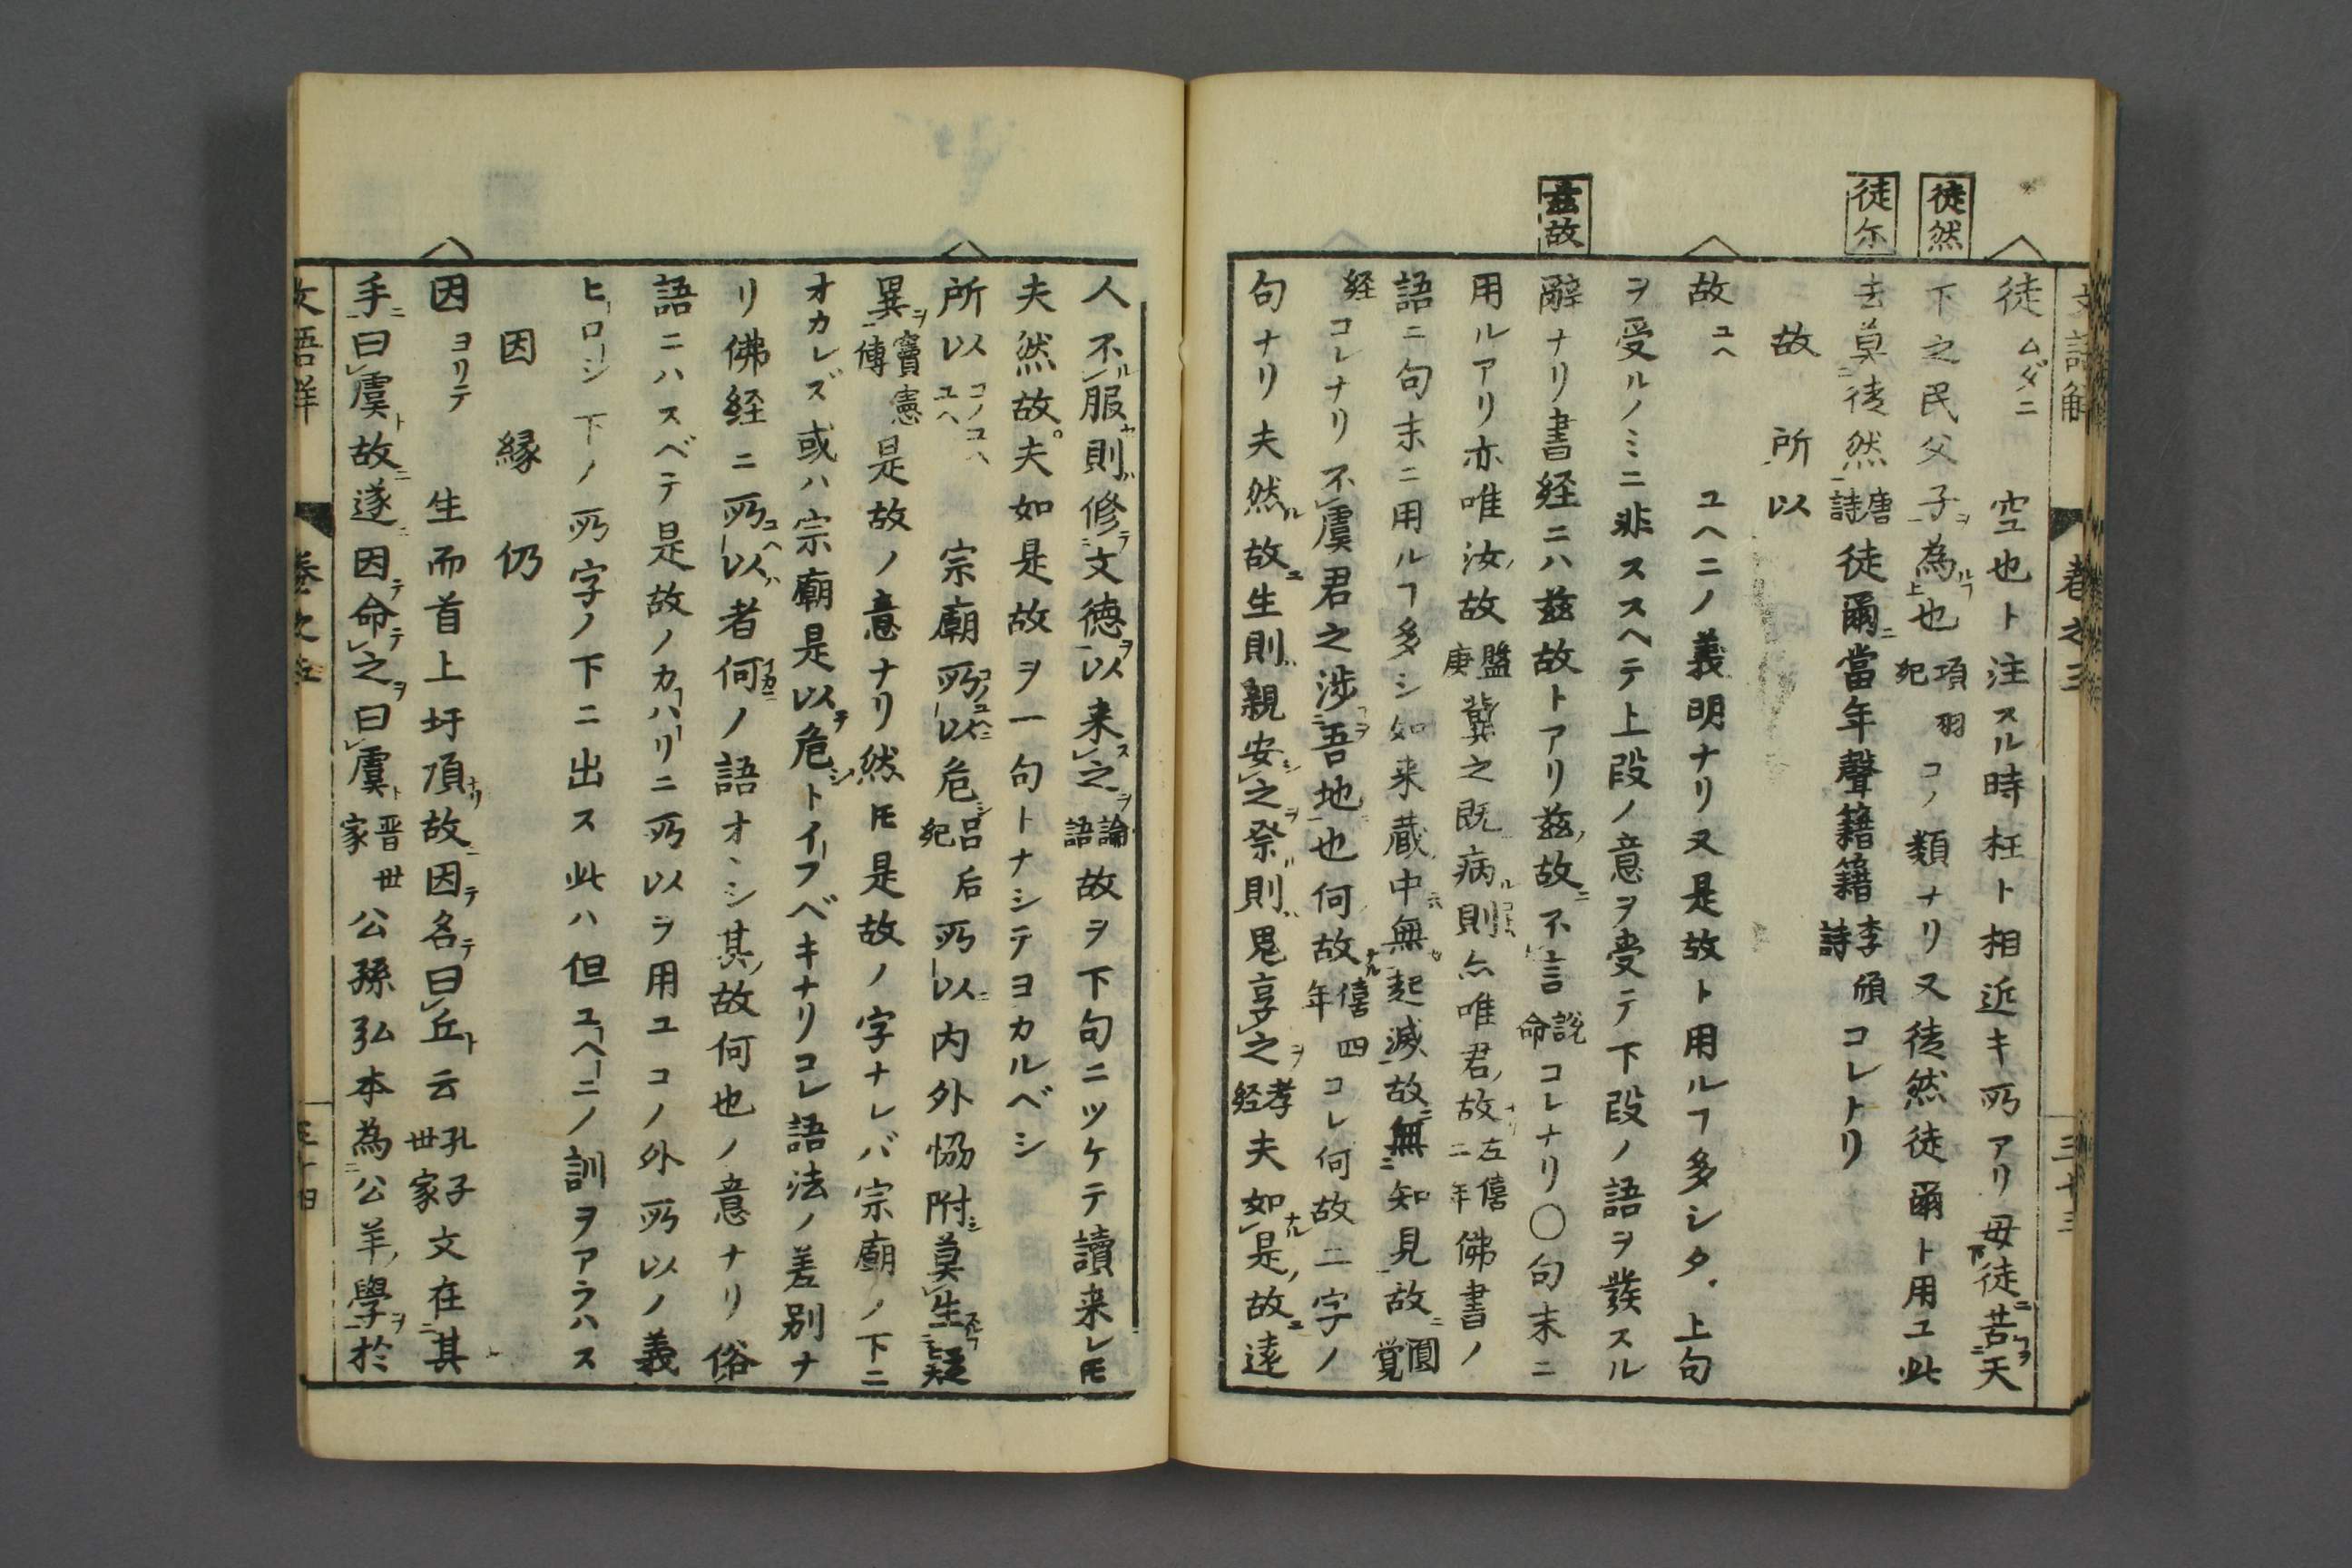 徒然
徒尓
茲故
文語解 巻之三 三十三
徒 ムダニ 空也ト注スル時枉ト相近キ所アリ毋徒苦天
下之民父子為也 項羽紀 コノ類ナリ又徒然徒爾ト用ユ此
去莫徒然 唐詩 徒爾當年聲籍籍 李頎詩 コレトリ
故 所以
故 ユヘ ユヘニノ義明ナリ又是故ト用ルヿ多シタヾ上句
ヲ受ルノミニ非ススヘテ上段ノ意ヲ受テ下段ノ語ヲ発スル
辭ナリ書経ニハ茲故トアリ茲故不言 説命 コレナリ〇句末ニ
用ルアリ亦唯汝故 盤庚 冀之既病則亦唯君故 左僖二年 佛書ノ
語ニ句末ニ用ルヿ多シ如来蔵中無起滅故無知見故 圓覚
経 コレナリ不虞君之渉吾地也何故 僖四年 コレ何故二字ノ
句ナリ夫然故生則親安之祭則鬼享之 孝経 夫如是故遠
人不服則修文徳以来之 論語 故ヲ下句ニツケテ讀来レ𪜈
夫然故夫如是故ヲ一句トナシテヨカルベシ
所以 コノユヘ ユヘ 宗廟所以危 呂后紀 所以内外恊附莫生疑
異 竇憲傳 是故ノ意ナリ然𪜈是故ノ字ナレバ宗廟ノ下ニ
オカレズ或ハ宗廟是以危トイフベキナリコレ語法ノ差別ナ
リ佛経ニ所以者何ノ語オヽシ其故何也ノ意ナリ俗
語ニハスベテ是故ノカハリニ所以ヲ用ユコノ外所以ノ義
ヒロシ下ノ所字ノ下ニ出ス此ハ但ユヘニノ訓ヲアラハス
因 縁 仍
因 ヨリテ 生而首上圩頂故因名曰丘云 孔子世家 文在其
手曰虞故遂因命之曰虞 晋世家 公孫弘本為公羊學於
文語解 巻之三 三十四